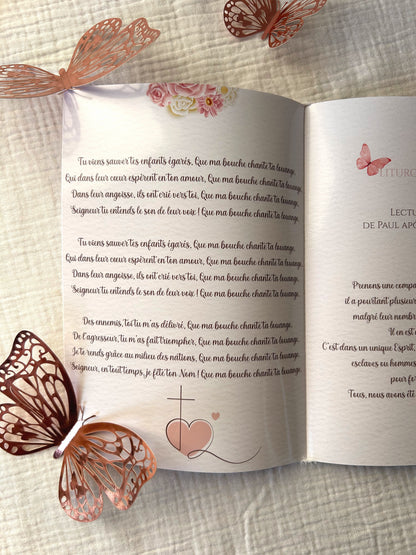 Tu viens sauver tes enfants égarés, Que ma bouche chante ta louange,
Qui dans leur cœur espèrent en ton amour, Que ma bouche chante ta louange.
Dans leur angoisse, ils ont crié vers toi, Que ma bouche chante ta louange,
Seigneur tu entends le son de leur voix ! Que ma bouche chante ta louange.
Tu viens sauver tes enfants égarés, Que ma bouche chante ta louange,
Qui dans leur cœur espèrent en ton amour, Que ma bouche chante ta louange.
Dans leur angoisse, ils ont crié vers toi, Que ma bouche chante ta louange,
Seigneur tu entends le son de leur voix ! Que ma bouche chante ta louange.
Des ennemis, toi tu m'as délivré, Que ma bouche chante ta louange,
De l'agresseur, tu m'as fait triompher, Que ma bouche chante ta louange.
Je te rends grâce au milieu des nations, Que ma bouche chante ta louange,
Seigneur, en tout temps, je fête ton Nom ! Que ma bouche chante ta louange.
LITURG
LECTU
DE PAUL APÔ
Prenons une compa
il a pourtant plusieur
malgré leur nombr
Il en est
C'est dans un unique Esprit,
esclaves ou hommes
pour fo
Tous, nous avons été